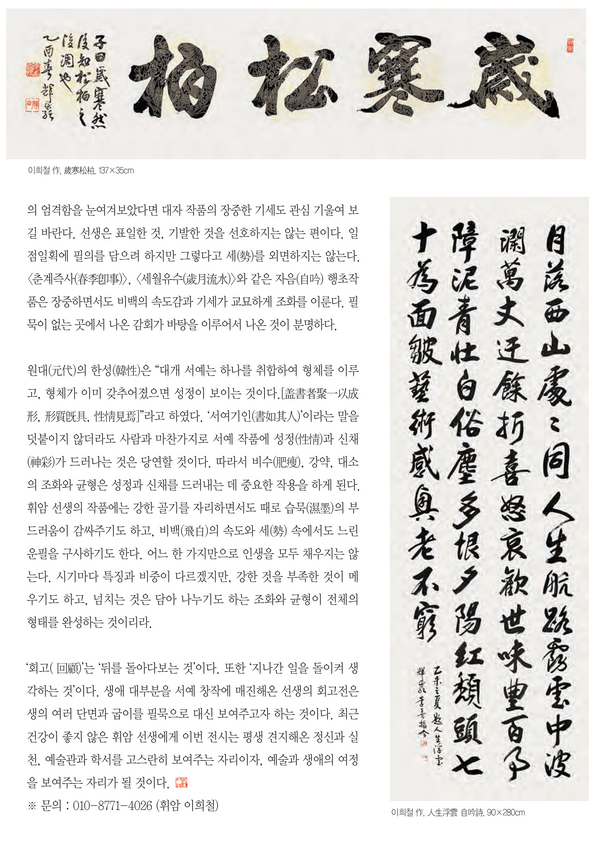 歲寒松柏
子曰歲寒然
後知松柏之
後凋也
乙酉春 輝巖
이희철 作, 歲寒松柏, 137×35cm
의 엄격함을 눈여겨보았다면 대자 작품의 장중한 기세도 관심 기울여 보
길 바란다. 선생은 표일한 것, 기발한 것을 선호하지는 않는 편이다. 일
점일획에 필의를 담으려 하지만 그렇다고 세(勢)를 외면하지는 않는다.
〈춘계즉사(春季卽事)〉, 〈세월유수(歲月流水)〉와 같은 자음(自吟) 행초작
품은 장중하면서도 비백의 속도감과 기세가 교묘하게 조화를 이룬다. 필
묵이 없는 곳에서 나온 감회가 바탕을 이루어서 나온 것이 분명하다.
원대(元代)의 한성(韓性)은 “대개 서예는 하나를 취합하여 형체를 이루
고, 형체가 이미 갖추어졌으면 성정이 보이는 것이다.[盖書者聚一以成
形, 形質旣具, 性情見焉]”라고 하였다. ‘서여기인(書如其人)’이라는 말을
덧붙이지 않더라도 사람과 마찬가지로 서예 작품에 성정(性情)과 신채
(神彩)가 드러나는 것은 당연할 것이다. 따라서 비수(肥瘦), 강약, 대소
의 조화와 균형은 성정과 신채를 드러내는 데 중요한 작용을 하게 된다.
휘암 선생의 작품에는 강한 골기를 자리하면서도 때로 습묵(濕墨)의 부
드러움이 감싸주기도 하고, 비백(飛白)의 속도와 세(勢) 속에서도 느린
운필을 구사하기도 한다. 어느 한 가지만으로 인생을 모두 채우지는 않
는다. 시기마다 특징과 비중이 다르겠지만, 강한 것을 부족한 것이 메
우기도 하고, 넘치는 것은 담아 나누기도 하는 조화와 균형이 전체의
형태를 완성하는 것이리라.
‘회고( 回顧)’는 ‘뒤를 돌아다보는 것’이다. 또한 ‘지나간 일을 돌이켜 생
각하는 것’이다. 생애 대부분을 서예 창작에 매진해온 선생의 회고전은
생의 여러 단면과 굽이를 필묵으로 대신 보여주고자 하는 것이다. 최근
건강이 좋지 않은 휘암 선생에게 이번 전시는 평생 견지해온 정신과 실
천, 예술관과 학서를 고스란히 보여주는 자리이자, 예술과 생애의 여정
을 보여주는 자리가 될 것이다.
※ 문의 : 010-8771-4026 (휘암 이희철)
月落西山處〻同人生航路霧雲中波
瀾萬丈迂餘折喜怒哀歡世味豊百事
障泥青壯白俗塵多恨夕陽紅頹頭七
十為面皺藝術感興老不窮
乙未之夏 題人生浮雲
이희철 作, 人生浮雲 自吟詩, 90×280cm